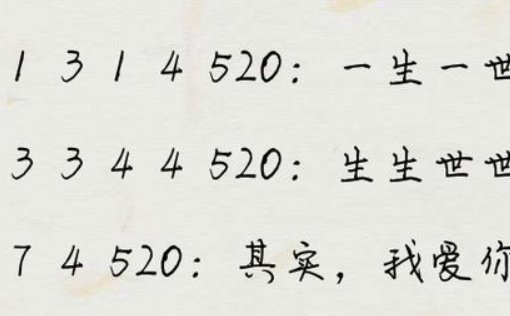 1 3 1 4 520: 一生一世
3 3 4 4 520: 生生世世
7 4 520: 其实，我爱你